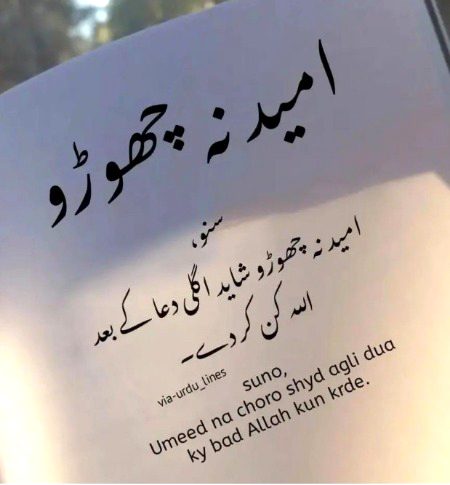 امید نہ چھوڑو
سنو،
امید نہ چھوڑو شاید اگلی دعا کے بعد
اللہ کن کر دے۔
via-urdu_lines
suno,
Umeed na choro shyd agli dua
ky bad Allah kun krde.